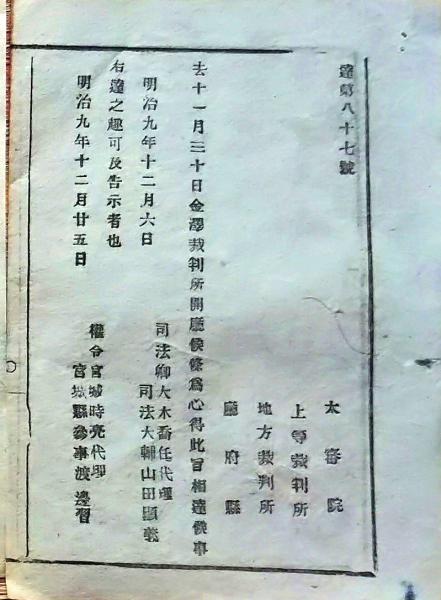 達第八十七號
大審院
上等裁判所
地方裁判所
廳府縣
去十一月三十日金澤裁判所開廳候條爲心得此旨相達候事
明治九年十二月六日
司法卿大木喬任代理
司法大輔山田顯義
右達之趣可及告示者也
明治九年十二月廿五日
權令宮城時亮代理
宮城縣參事渡邊習